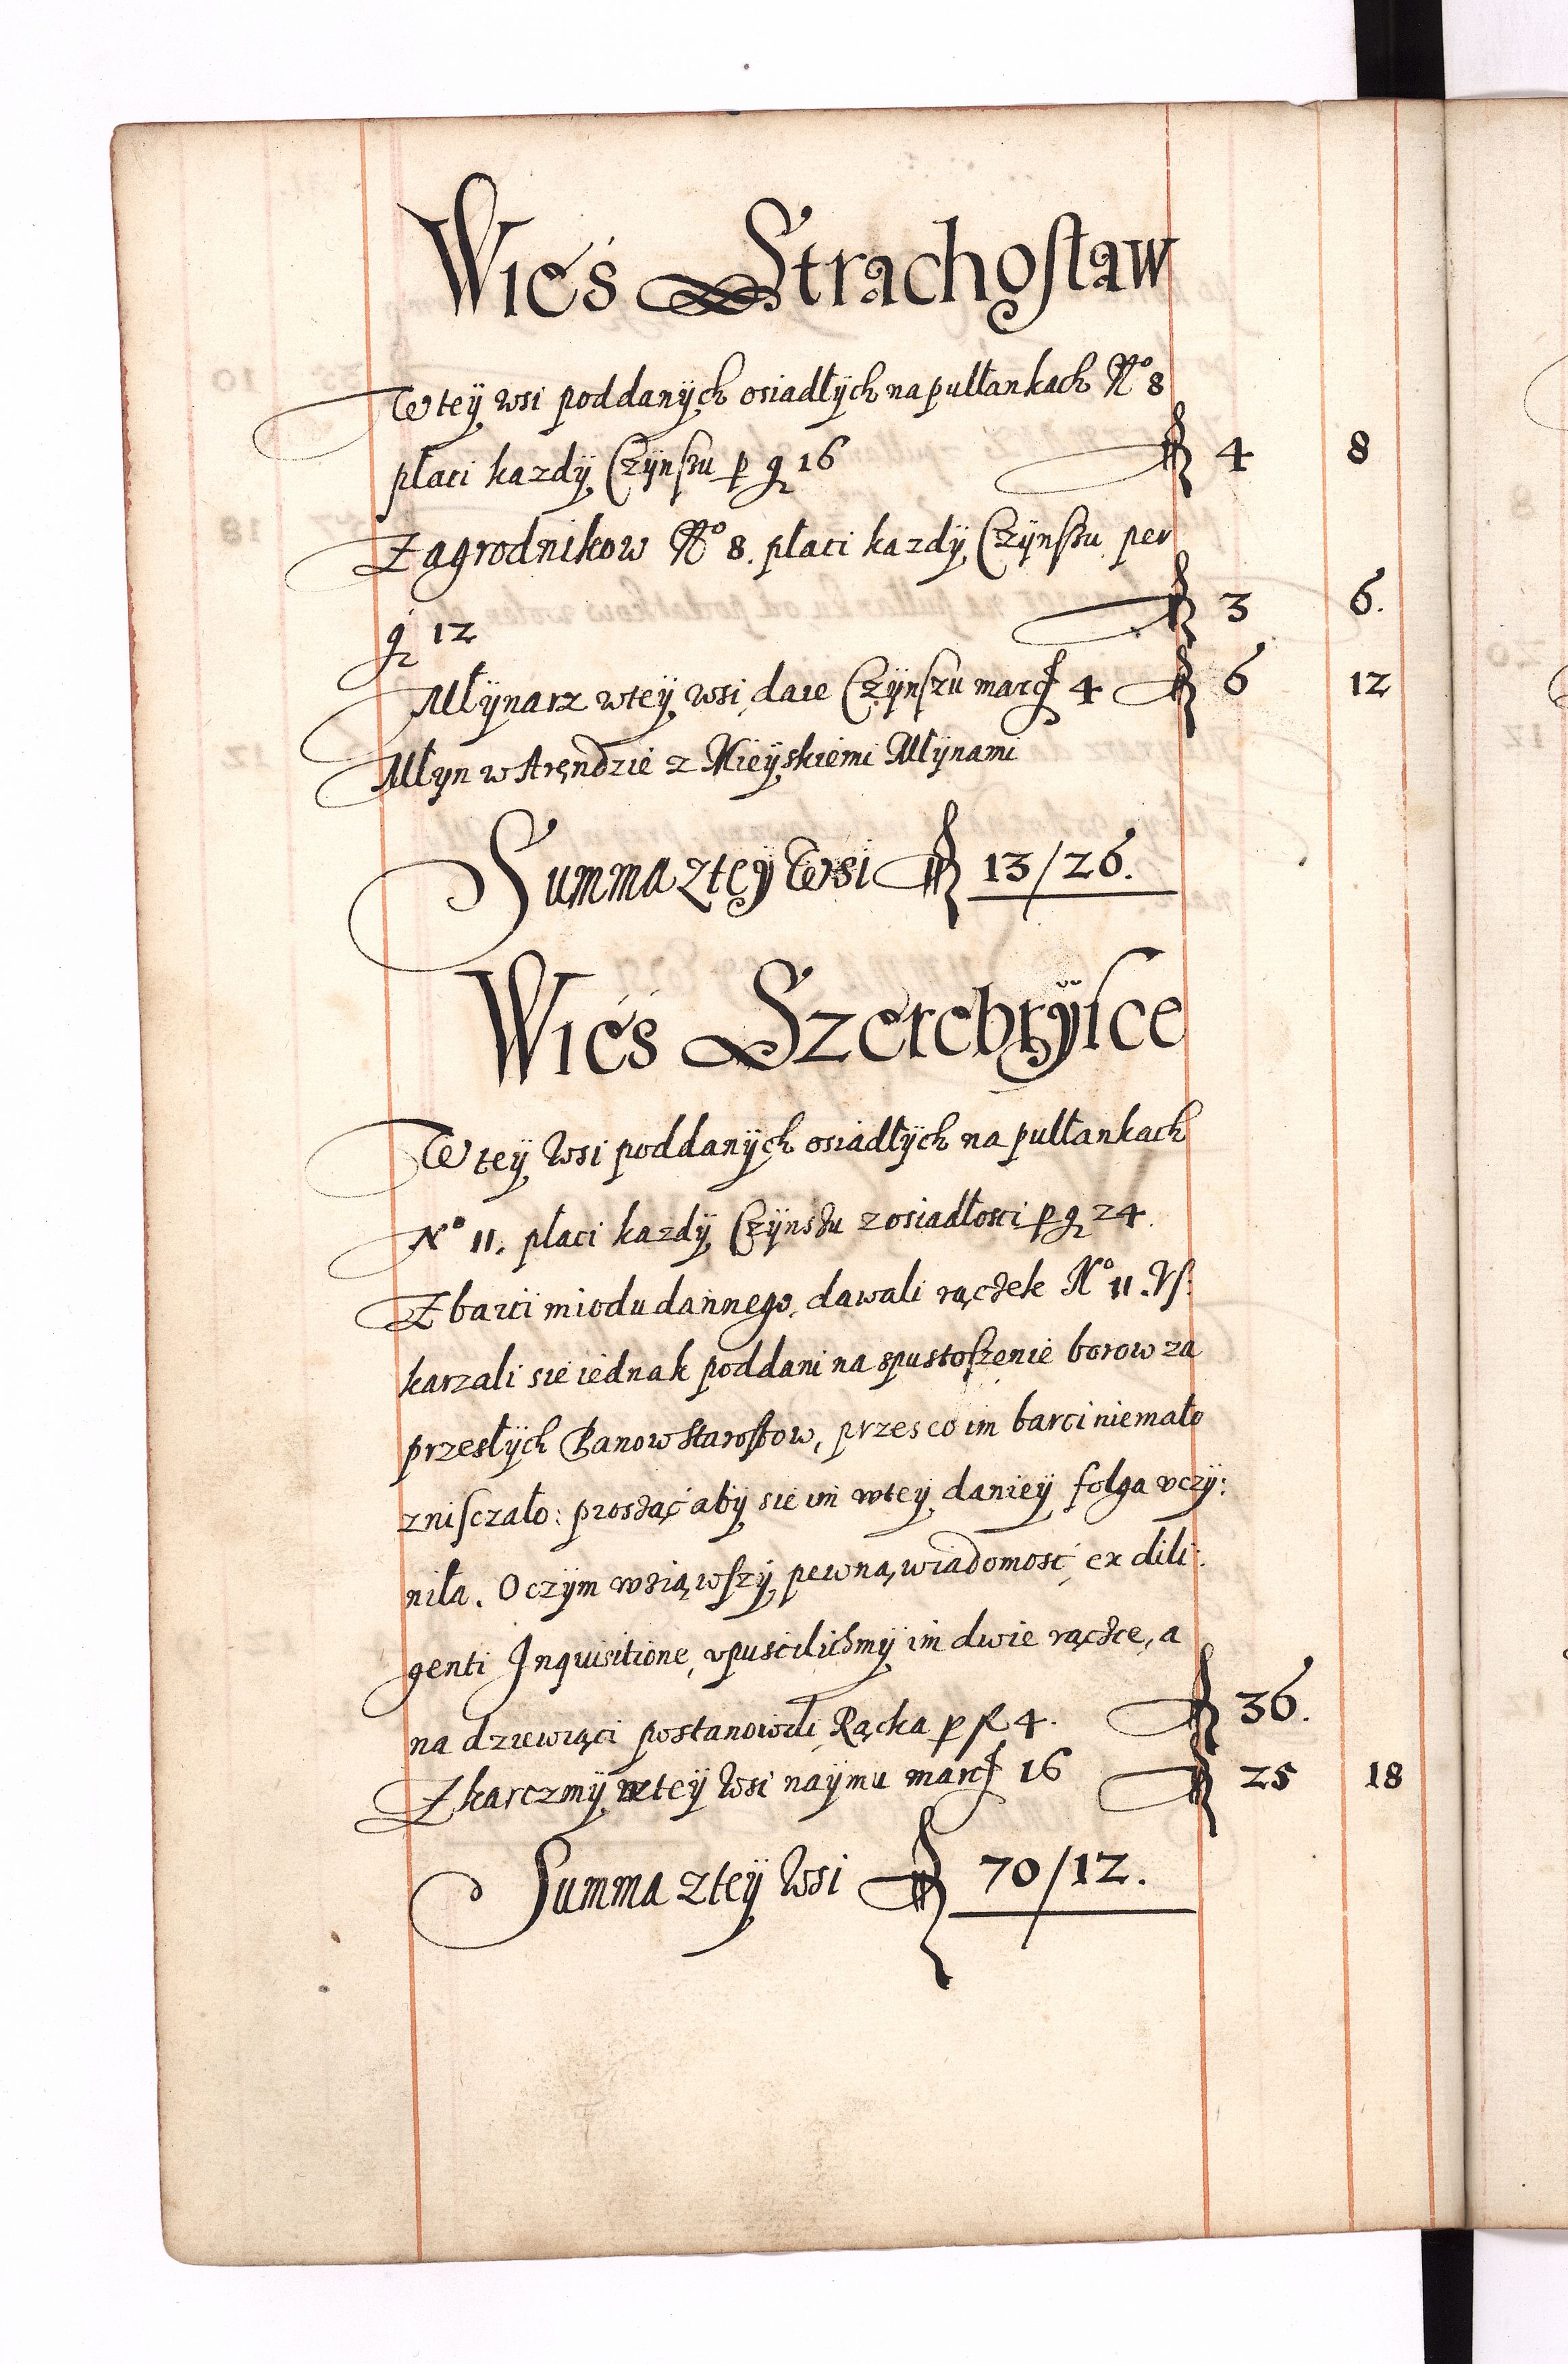 Wieś Strachosław
W teÿ wsi poddanÿch osiadłÿch na pułłankach Nº 8
płaci kazdÿ Czÿnszu p g 16 fl 4 8
Zagrodnikow Nº 8. płaci kazdÿ Czÿnszu per
g 12 fl 3 6.
Młÿnarz w teÿ wsi daie Czÿnszu marc 4 fl 6 12
Młyn w Arędzie z Mieÿskiemi Młÿnami
Summa z teÿ Wsi fl 13/26.
Wieś Szerebrÿsce
W teÿ Wsi poddanÿch osiadłÿch na pułłankach
Nº 11. płaci kazdÿ Czÿnszu z osiadłosci p g 24.
Z barci miodu dannego, dawali rączek Nº 11. Vs:
karzali sie iednak poddani na spustoszenie borow za
przesłÿch Panow Starostow, przes co im barci niemało
znisczało: prosząć abÿ sie im w teÿ danieÿ folga vczÿ:
niła. O czÿm wziąwszÿ pewną wiadomość ex dili:
genti Inquisitione, vpuscilichmÿ im dwie rączce, a
na dziewiąci postanowili, Rącka p fl 4. fl 36.
Z karczmÿ w teÿ Wsi naÿmu marc 16 fl 25 18
Summa z teÿ Wsi fl 70/12.